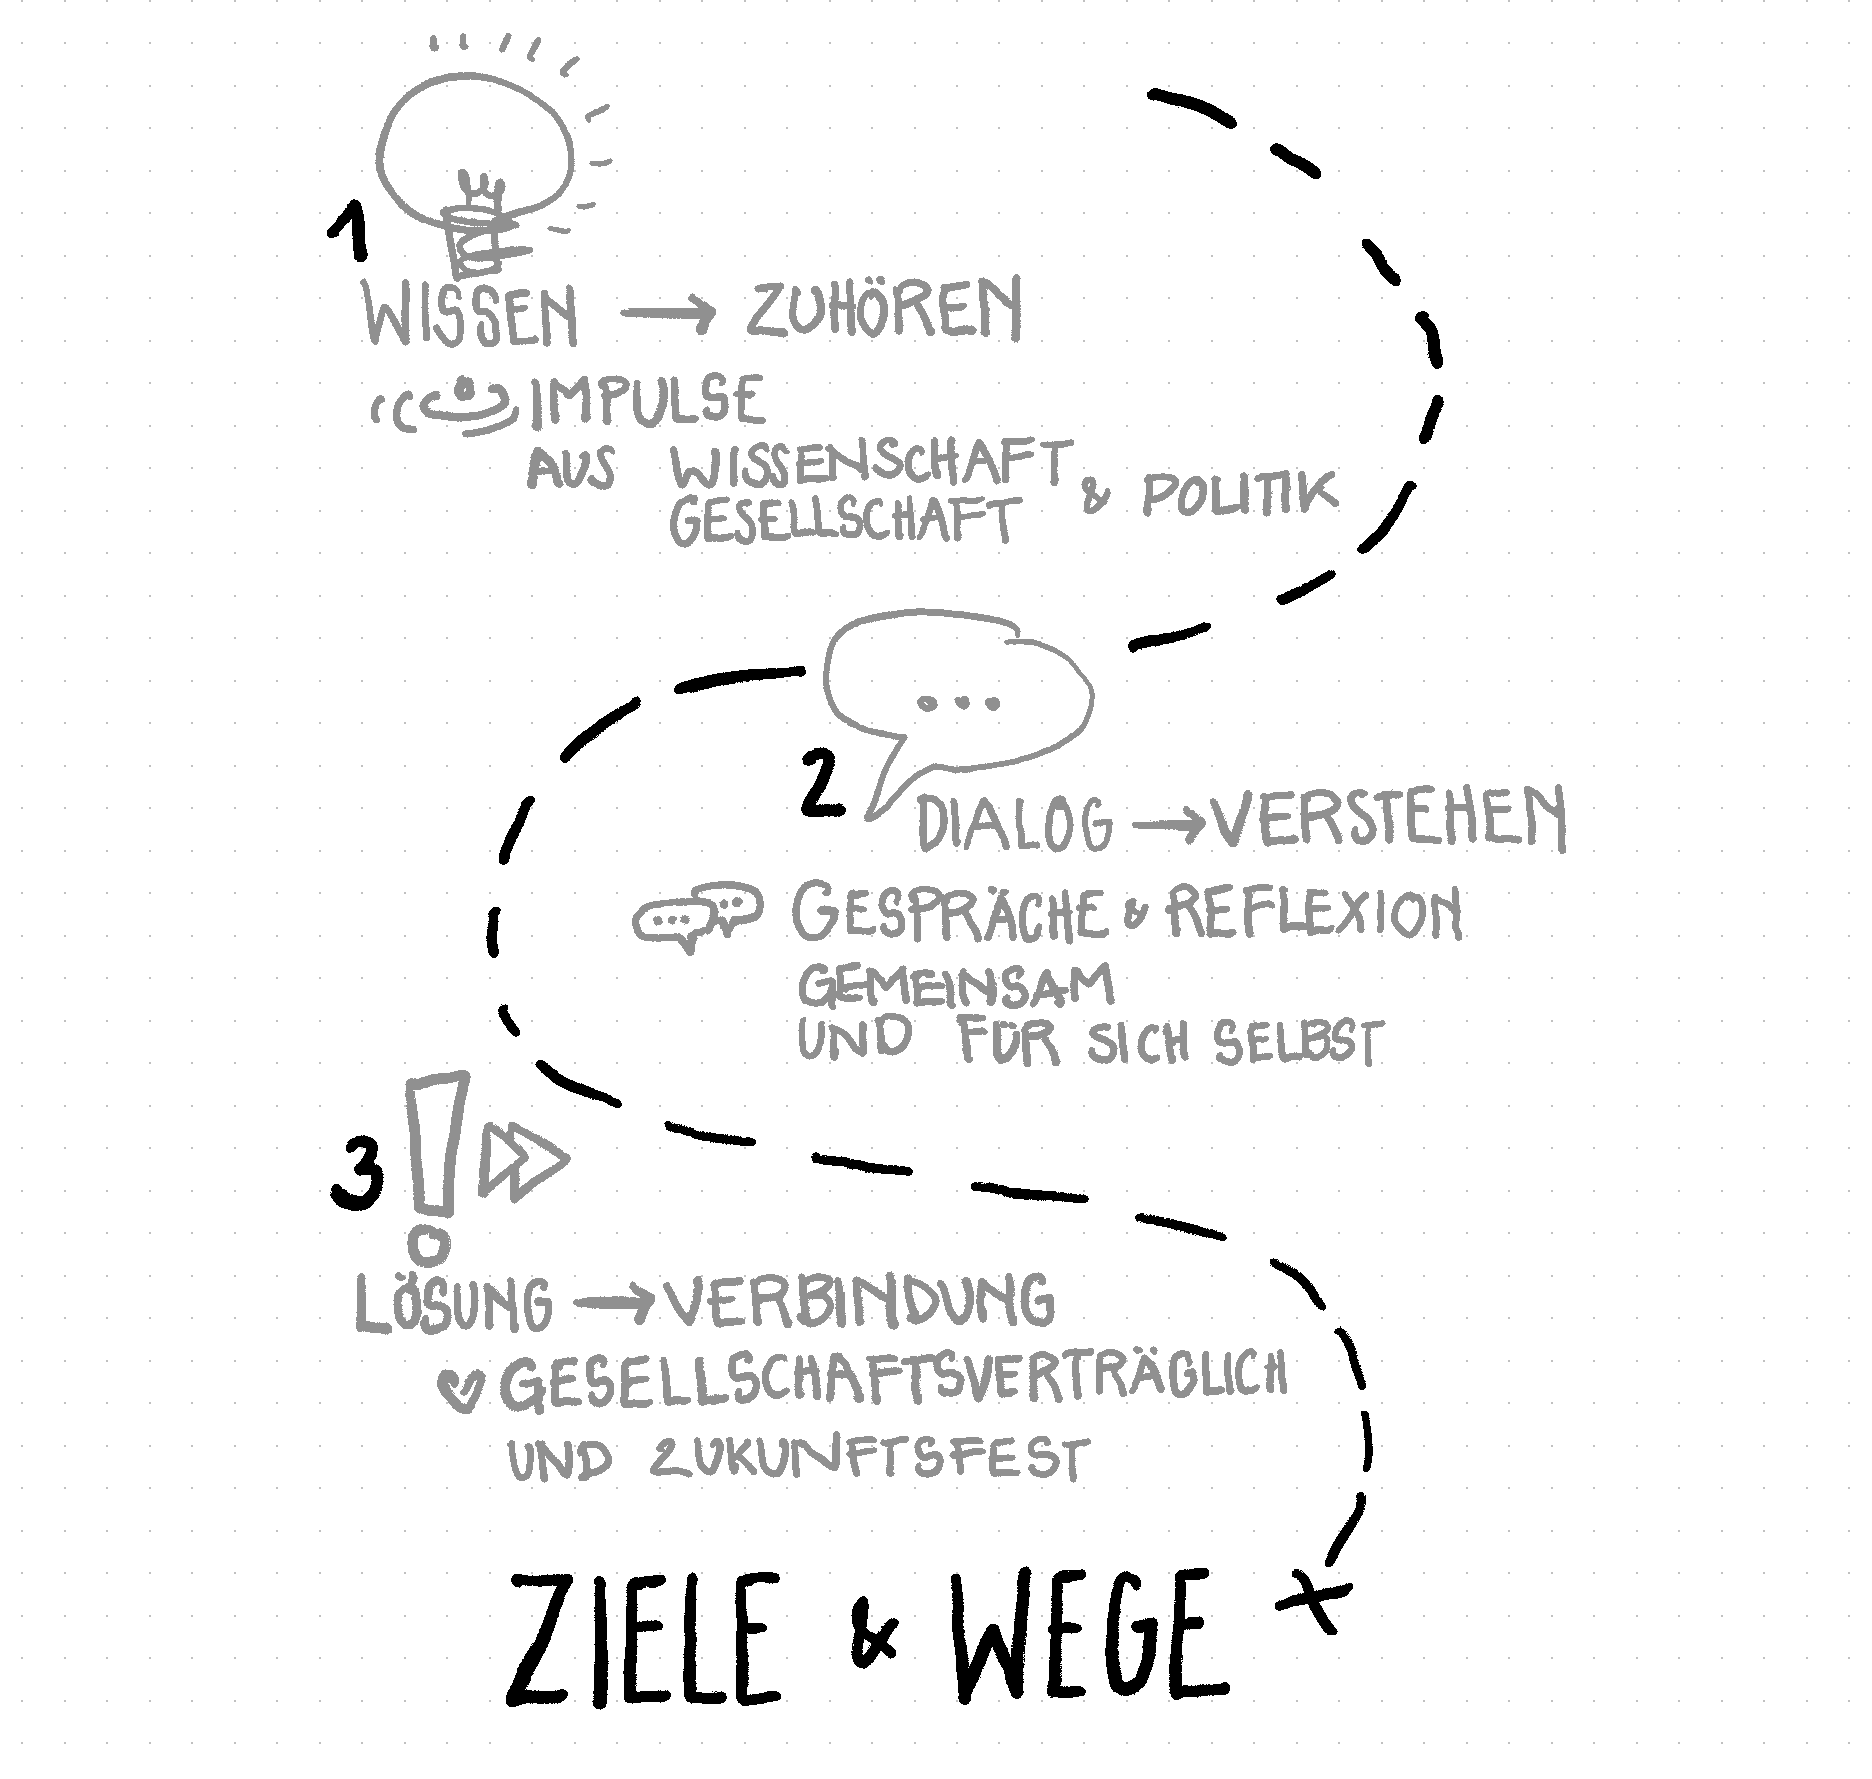 1
WISSEN → ZUHÖREN
IMPULSE
AUS WISSENSCHAFT
GESELLSCHAFT & POLITIK
2
DIALOG → VERSTEHEN
GESPRÄCHE & REFLEXION
GEMEINSAM
UND FÜR SICH SELBST
3
LÖSUNG → VERBINDUNG
GESELLSCHAFTSVERTRÄGLICH
UND ZUKUNFTSFEST
ZIELE & WEGE